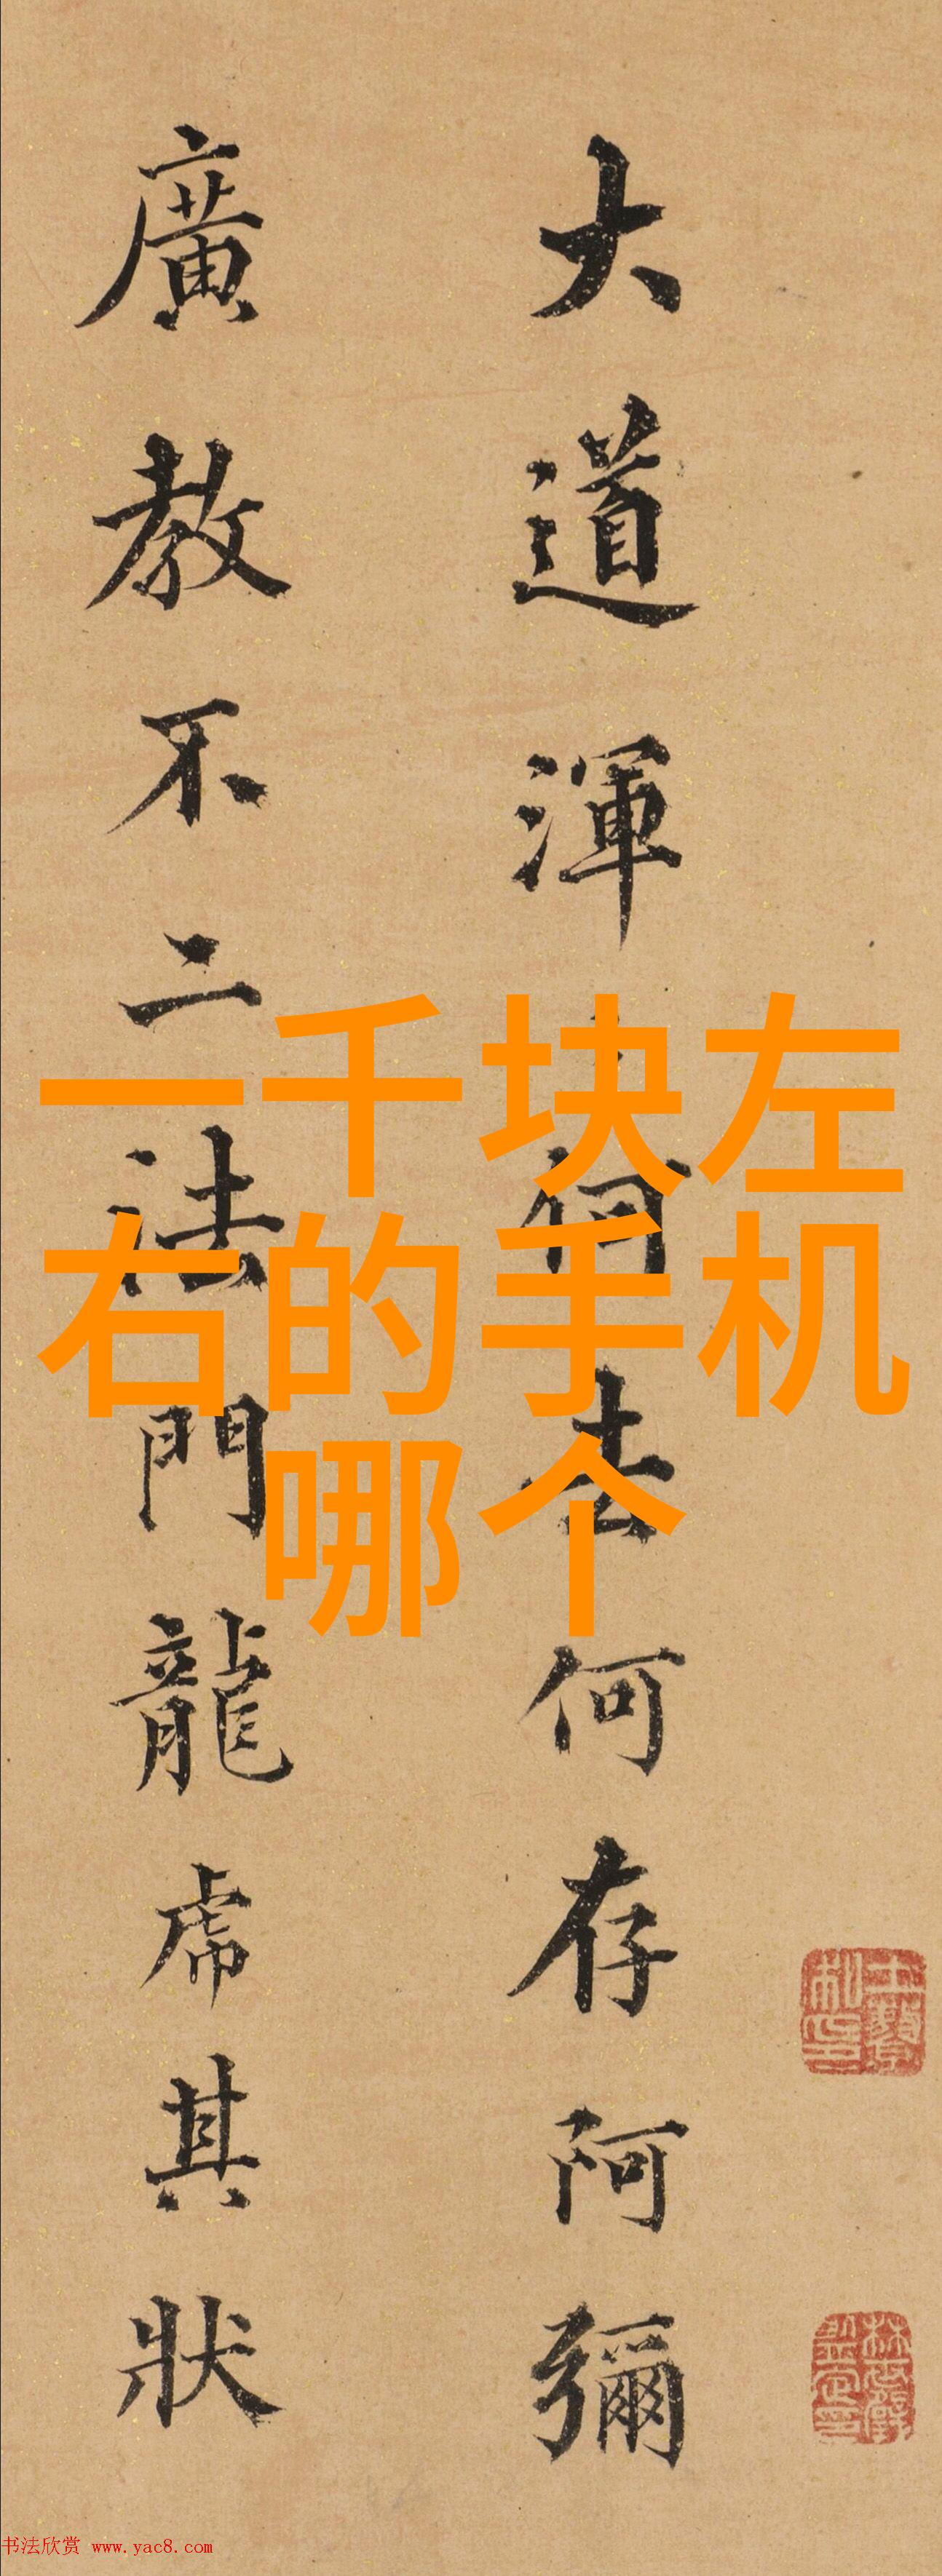 大道渾
何去何存阿彌
廣教不二法門龍虎其狀
一千块左
右的手机
哪个
书法欣赏 www.yac8.com